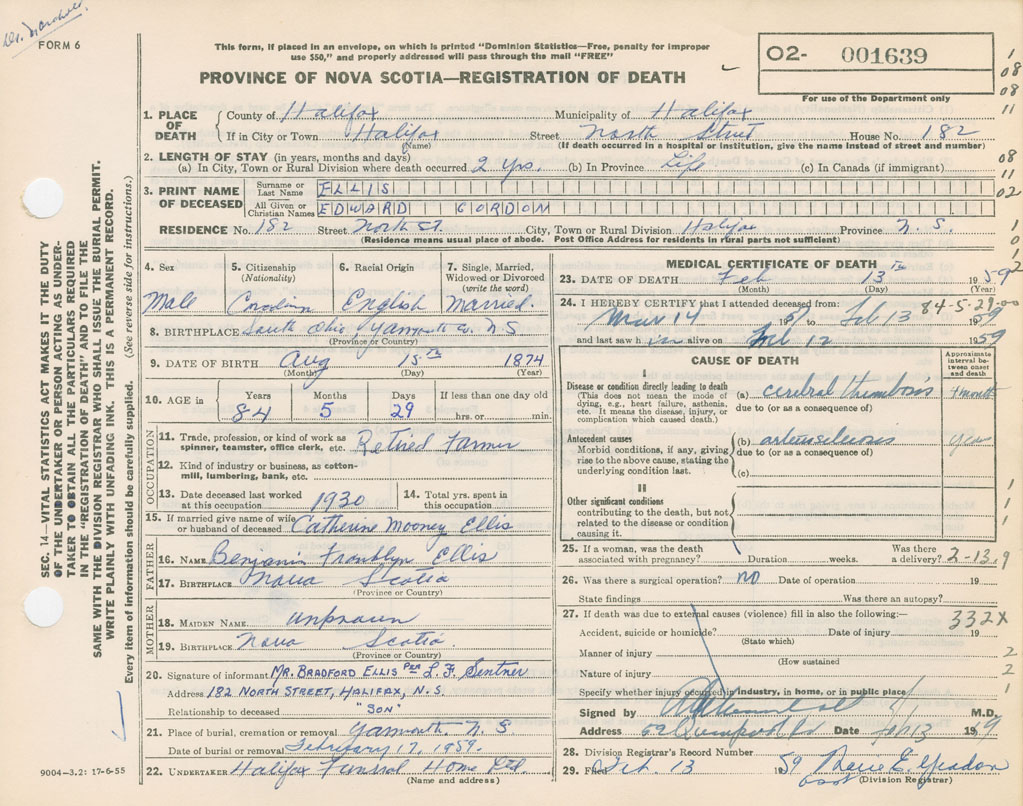 Dr. Marshall
FORM 6
This form, if placed in an envelope, on which is printed "Dominion Statistics—Free, penalty for improper
use $50," and properly addressed will pass through the mail "FREE"
PROVINCE OF NOVA SCOTIA—REGISTRATION OF DEATH
02- 001639
For use of the Department only
1. PLACE OF DEATH
County of Halifax Municipality of Halifax
If in City or Town Halifax Street North Street House No. 182
(Name) (If death occurred in a hospital or institution, give the name instead of street and number)
2. LENGTH OF STAY (in years, months and days)
(a) In City, Town or Rural Division where death occurred 2 yrs. (b) In Province Life (c) In Canada (if immigrant)
3. PRINT NAME OF DECEASED
Surname or Last Name ELLIS
All Given or Christian Names EDWARD GORDON
RESIDENCE No. 182 Street North St. City, Town or Rural Division Halifax Province N. S.
(Residence means usual place of abode. Post Office Address for residents in rural parts not sufficient)
4. Sex 5. Citizenship (Nationality) 6. Racial Origin 7. Single, Married, Widowed or Divorced (write the word)
Male Canadian English Married.
8. BIRTHPLACE South Ohio Yarmouth Co. N S
(Province or Country)
9. DATE OF BIRTH Aug 15th 1874
(Month) (Day) (Year)
10. AGE in Years Months Days If less than one day old
84 5 29 hrs. or min.
OCCUPATION
11. Trade, profession, or kind of work as spinner, teamster, office clerk, etc. Retired Farmer
12. Kind of industry or business, as cotton-mill, lumbering, bank, etc.
13. Date deceased last worked at this occupation 1930
14. Total yrs. spent in this occupation
15. If married give name of wife or husband of deceased Catherine Mooney Ellis
FATHER
16. NAME Benjamin Franklyn Ellis
17. BIRTHPLACE Nova Scotia
(Province or Country)
MOTHER
18. MAIDEN NAME unknown
19. BIRTHPLACE Nova Scotia
(Province or Country)
20. Signature of informant MR. BRADFORD ELLIS PER L. F. Sentner
Address 182 NORTH STREET, HALIFAX, N. S.
Relationship to deceased "SON"
21. Place of burial, cremation or removal Yarmouth N. S
Date of burial or removal February 17, 1959.
22. UNDERTAKER Halifax Funeral Home Ltd.
(Name and address)
MEDICAL CERTIFICATE OF DEATH
23. DATE OF DEATH Feb 13th 1959
(Month) (Day) (Year)
84-5-29-00
24. I HEREBY CERTIFY that I attended deceased from:
Mar 14 to Feb 13 1959
and last saw him alive on Feb 12 1959
CAUSE OF DEATH
Approximate interval between onset and death
I
Disease or condition directly leading to death
(This does not mean the mode of dying, e.g., heart failure, asthenia, etc. It means the disease, injury, or complication which caused death.)
(a) cerebral thrombosis
due to (or as a consequence of)
Antecedent causes
Morbid conditions, if any, giving rise to the above cause, stating the underlying condition last.
(b) arteriosclerosis years
due to (or as a consequence of)
(c)
II
Other significant conditions
contributing to the death, but not related to the disease or condition causing it.
25. If a woman, was the death associated with pregnancy? Duration weeks. Was there a delivery?
2-13-9
26. Was there a surgical operation? NO Date of operation 19
State findings Was there an autopsy?
27. If death was due to external causes (violence) fill in also the following:—
332X
Accident, suicide or homicide? Date of injury 19
(State which)
Manner of injury
(How sustained)
Nature of injury
Specify whether injury occurred in industry, in home, or in public place
Signed by M.D.
Address Date Feb 13 19
28. Division Registrar's Record Number
29. Filed Feb. 13 1959 Marie E. Yeadon
(Division Registrar)
SEC. 14—VITAL STATISTICS ACT MAKES IT THE DUTY
OF THE UNDERTAKER OR PERSON ACTING AS UNDER-
TAKER TO OBTAIN ALL THE PARTICULARS REQUIRED
IN THE "REGISTRATION OF DEATH" AND TO FILE THE
SAME WITH THE DIVISION REGISTRAR WHO SHALL ISSUE THE BURIAL PERMIT.
WRITE PLAINLY WITH UNFADING INK. THIS IS A PERMANENT RECORD.
Every item of information should be carefully supplied. (See reverse side for instructions.)
9004—3.2: 17-6-55
1
08
08
11
08
11
02
1
0
1
2
1
1
1
2
2
1